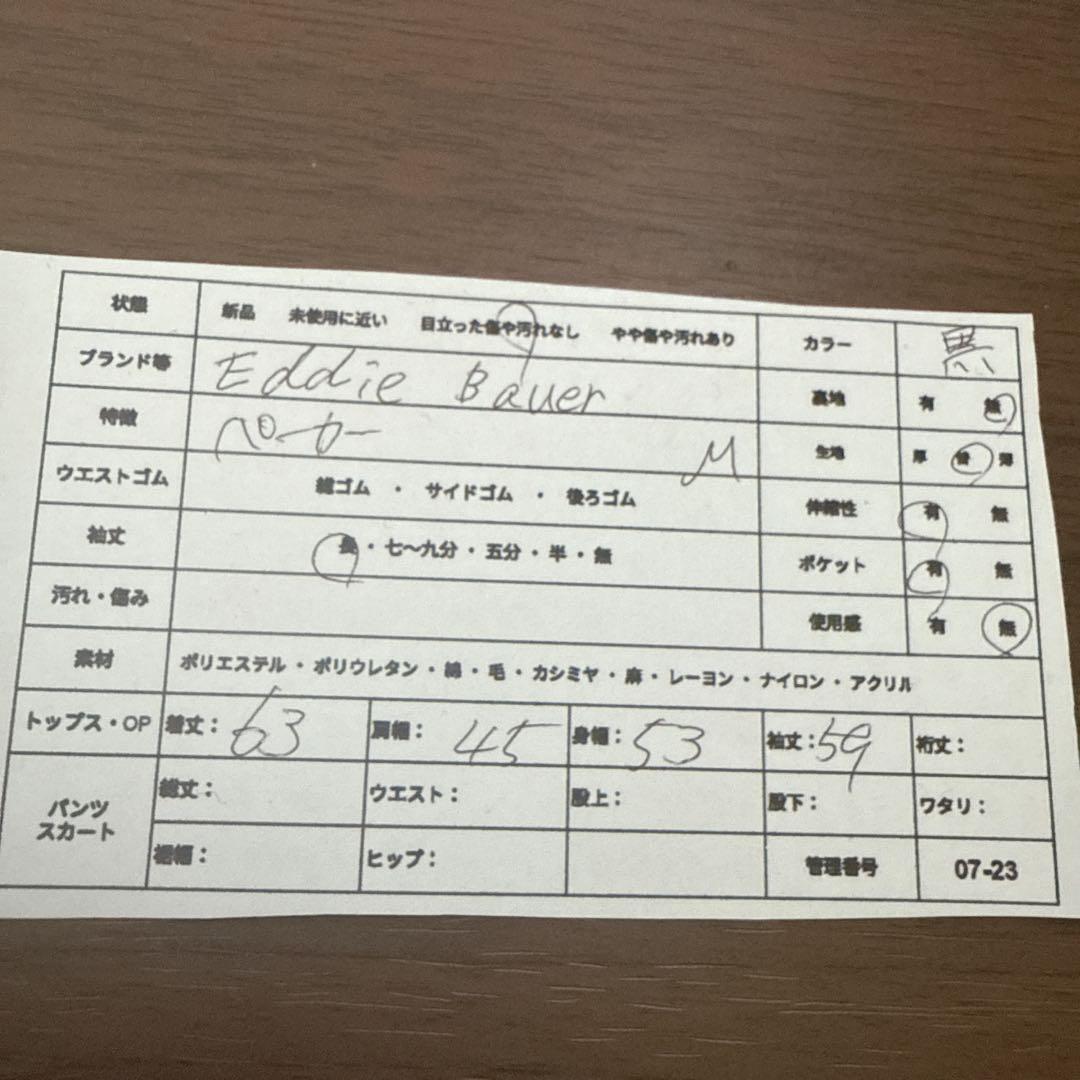 状態 新品 未使用に近い 目立った傷や汚れなし やや傷や汚れあり カラー 黒
ブランド等 Eddie Bauer 裏地 有 無
特徴 パーカー M 生地 厚 普 薄
ウエストゴム 総ゴム ・ サイドゴム ・ 後ろゴム 伸縮性 有 無
袖丈 長・七〜九分・五分・半・無 ポケット 有 無
汚れ・傷み 使用感 有 無
素材 ポリエステル・ポリウレタン・綿・毛・カシミヤ・麻・レーヨン・ナイロン・アクリル
トップス・OP 着丈：63 肩幅：45 身幅：53 袖丈：59 裄丈：
パンツ スカート 総丈： ウエスト： 股上： 股下： ワタリ：
裾幅： ヒップ： 管理番号 07-23